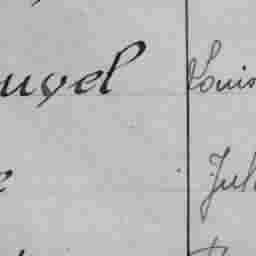 uyel Louis
e Jul